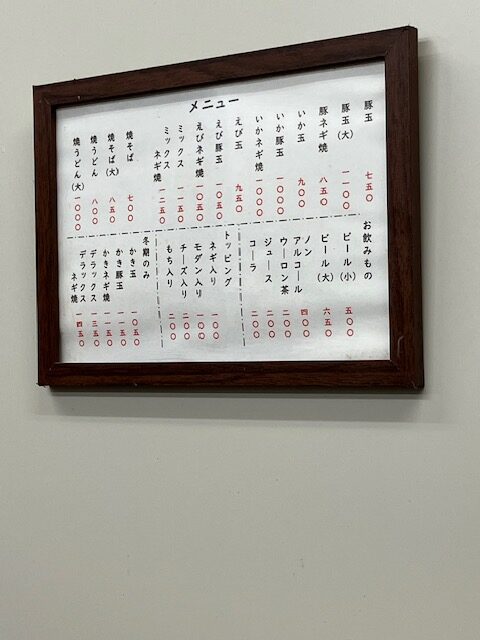 メニュー
豚玉 七五〇
豚玉(大) 一一〇〇
豚ネギ焼 八五〇
いか玉 九〇〇
いか豚玉 一〇〇〇
いかネギ焼 一〇〇〇
えび玉 九五〇
えび豚玉 一〇五〇
えびネギ焼 一〇五〇
ミックス 一一五〇
ミックス
ネギ焼 一二五〇
焼そば 七〇〇
焼そば(大) 八五〇
焼うどん 八〇〇
焼うどん(大) 一〇〇〇
お飲みもの
ビール(小) 五〇〇
ビール(大) 六五〇
ノン
アルコール 四〇〇
ウーロン茶 二〇〇
ジュース 二〇〇
コーラ 二〇〇
トッピング
ネギ入り 一〇〇
モダン入り 一〇〇
チーズ入り 二〇〇
もち入り 二〇〇
冬期のみ
かき玉 一〇五〇
かき豚玉 一一五〇
かきネギ焼 一一五〇
デラックス 一三五〇
デラックス
ネギ焼 一四五〇